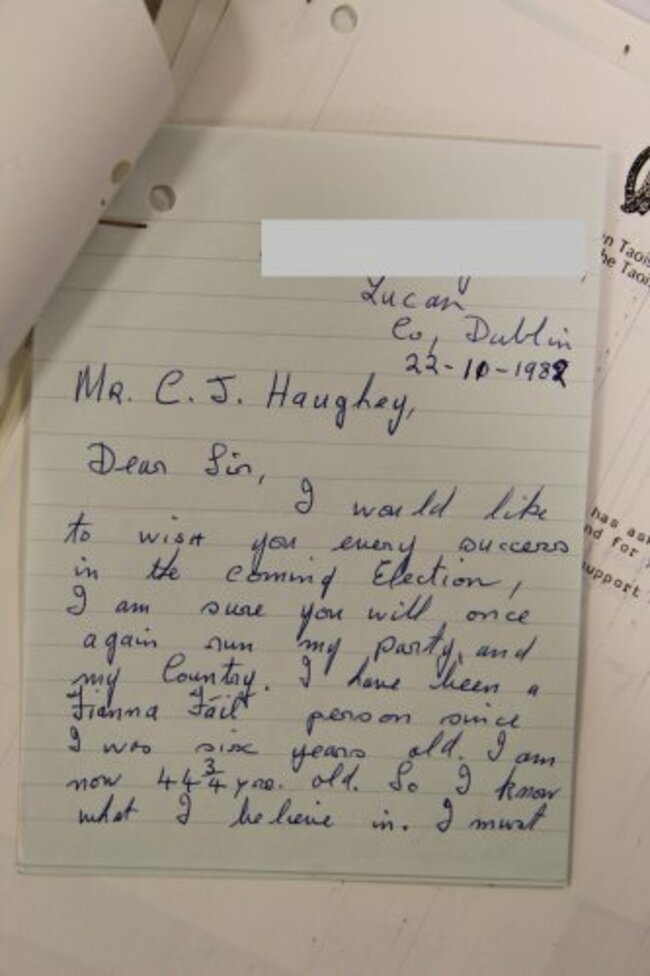 Lucan
Co, Dublin
22-10-1982
Mr. C. J. Haughey,
Dear Sir,
I would like
to wish you every success
in the coming Election,
I am sure you will once
again run my party, and
my Country. I have been a
Fianna Fáil person since
I was six years old. I am
now 44 3/4 yrs. old. So I know
what I believe in. I must
n Taois
he Taois
has ask
nd for
upport